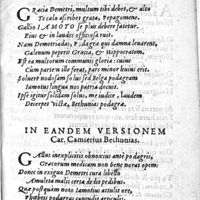 GRacia Demetri, multum tibi debet, & alto
Te cælo ascribet grata, Pepagomene.
Gallio IAMOTO se plus debere fatetur,
Pius & in laudes officiosa ruit.
Nam Demetriades, Podagra qui damna leuarent,
Galenum peperit Græcia, & Hippocratem,
Est ea multorum communis gloria: cuius
Cum partem ille ferat, pars minor eius erit.
Soluere nodosam solus sed Belga podagram
Iamotius lingua nos patria docuit.
Ipse igitur solidam solus, me iudice, laudem
Decerpet villa, Bethunias podagra.
IN EANDEM VERSIONEM
Car. Camierius Bethunias.
GAllus inexplicitis obnoxius ante podagris,
Græcorum medicam non bene norat opem:
Donec in exiguo Demetri cura libello
Amuleta malis certa dedisse pedibus.
Quæ postquam noto Iamotius attulit ore,